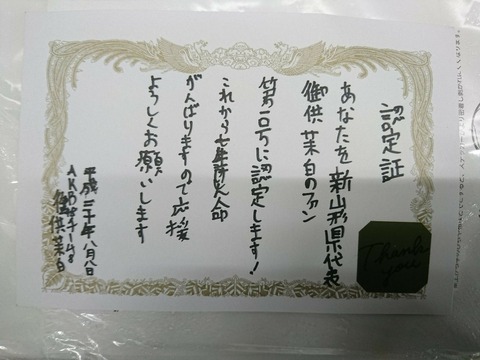 認定証
あなたを新山形県代表
御供茉白のファン
第一号に認定します!
これから一生けん命
がんばりますので応援
よろしくお願いします
平成三十年八月八日
AKBチーム8
御供茉白
Thank you